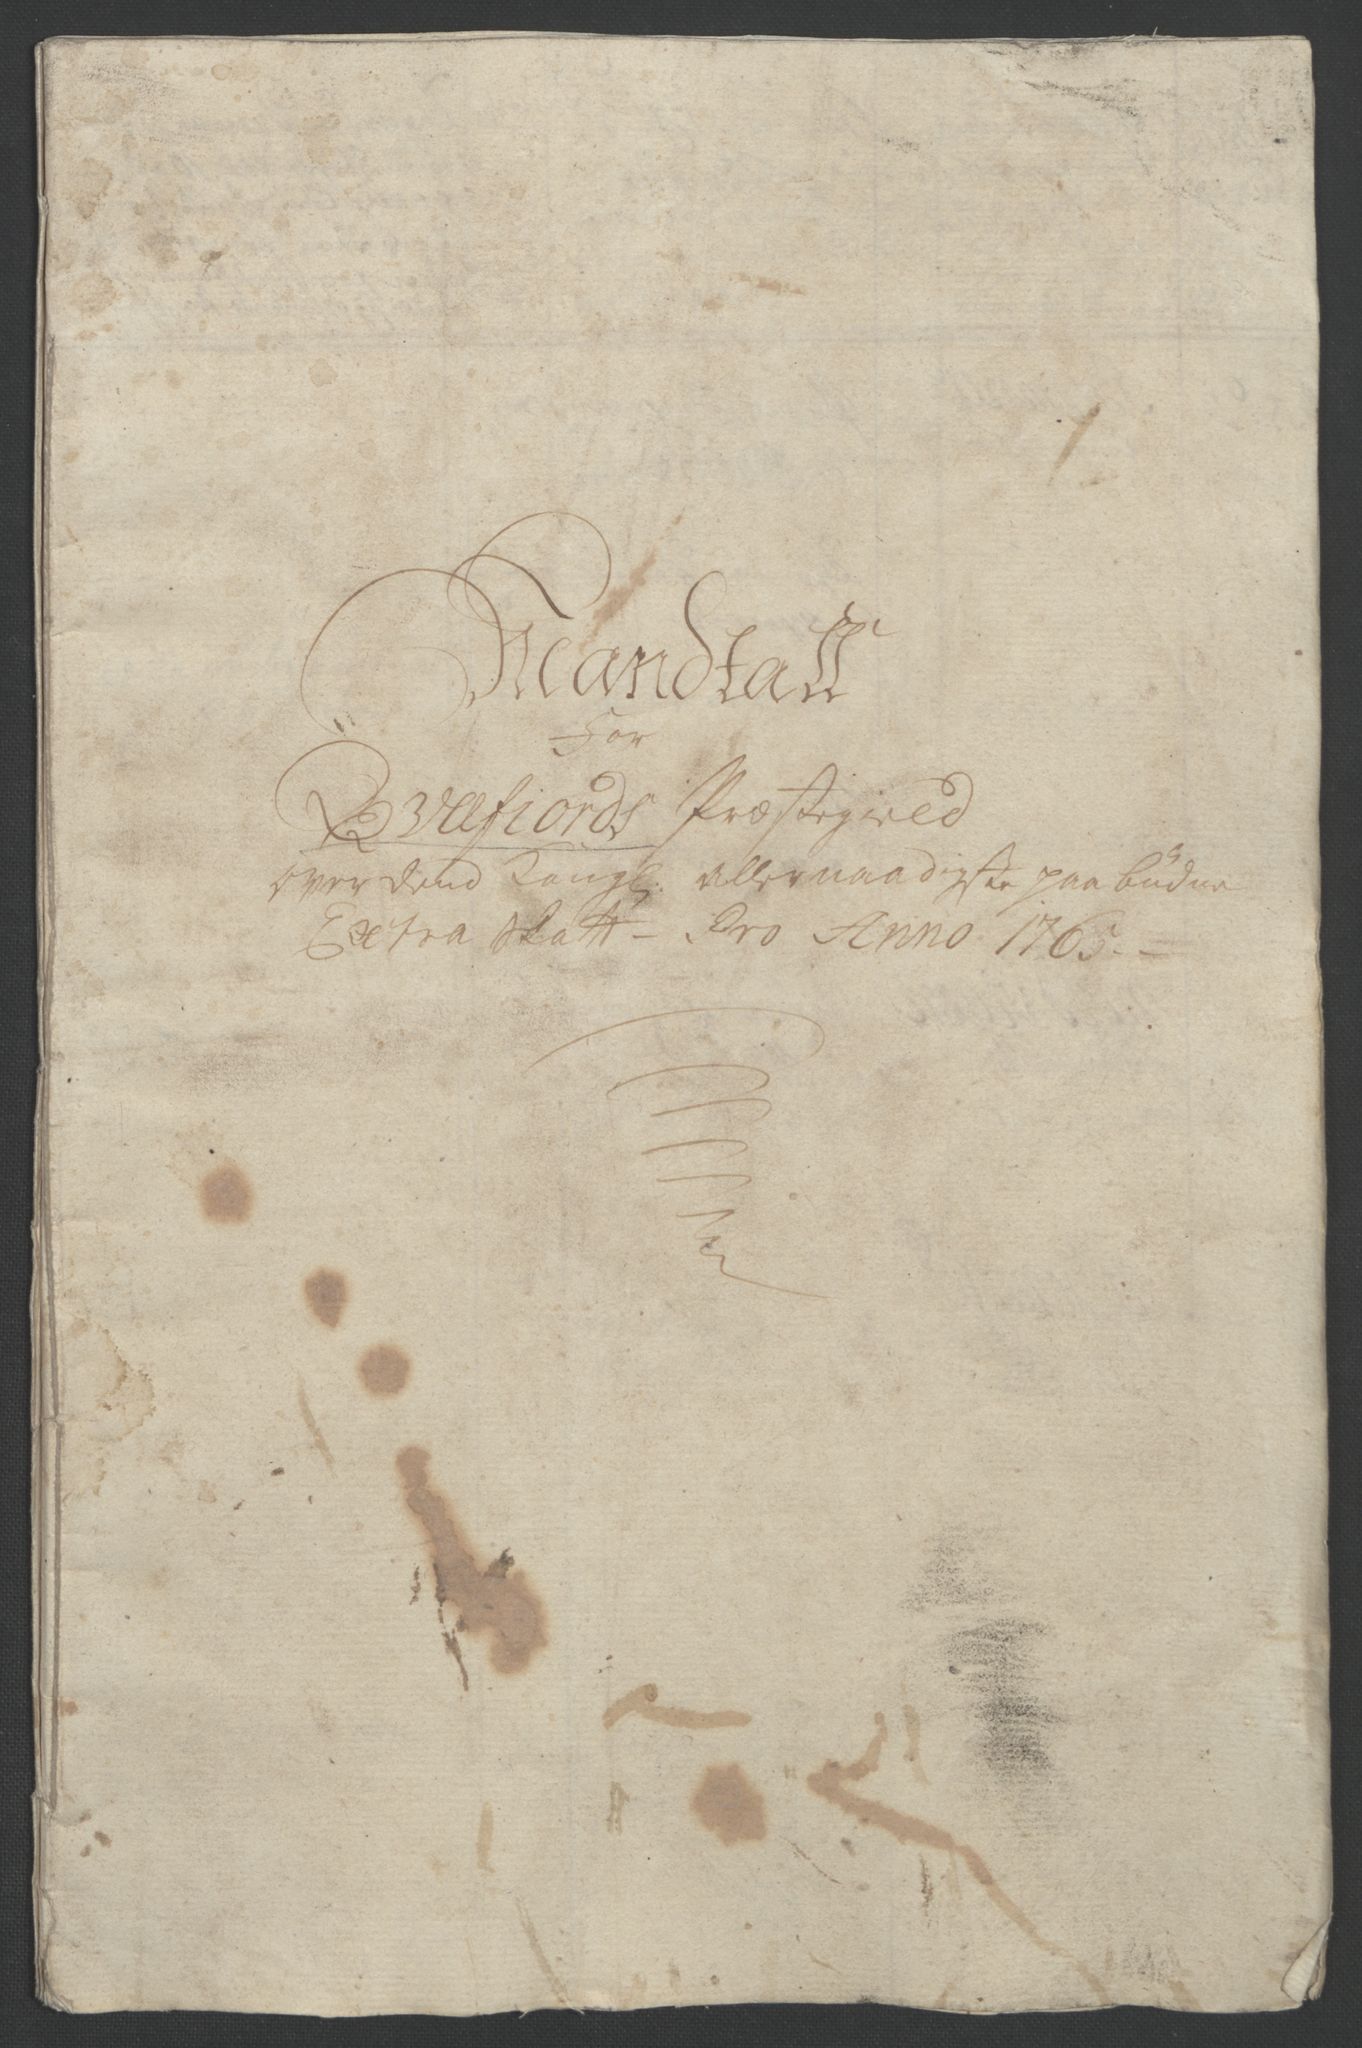 Mandtall
For
Qvæfiords Præstegield
over dend Kongl: allernaadigste paabudne
Extra Skatt – Pro Anno 1765. –